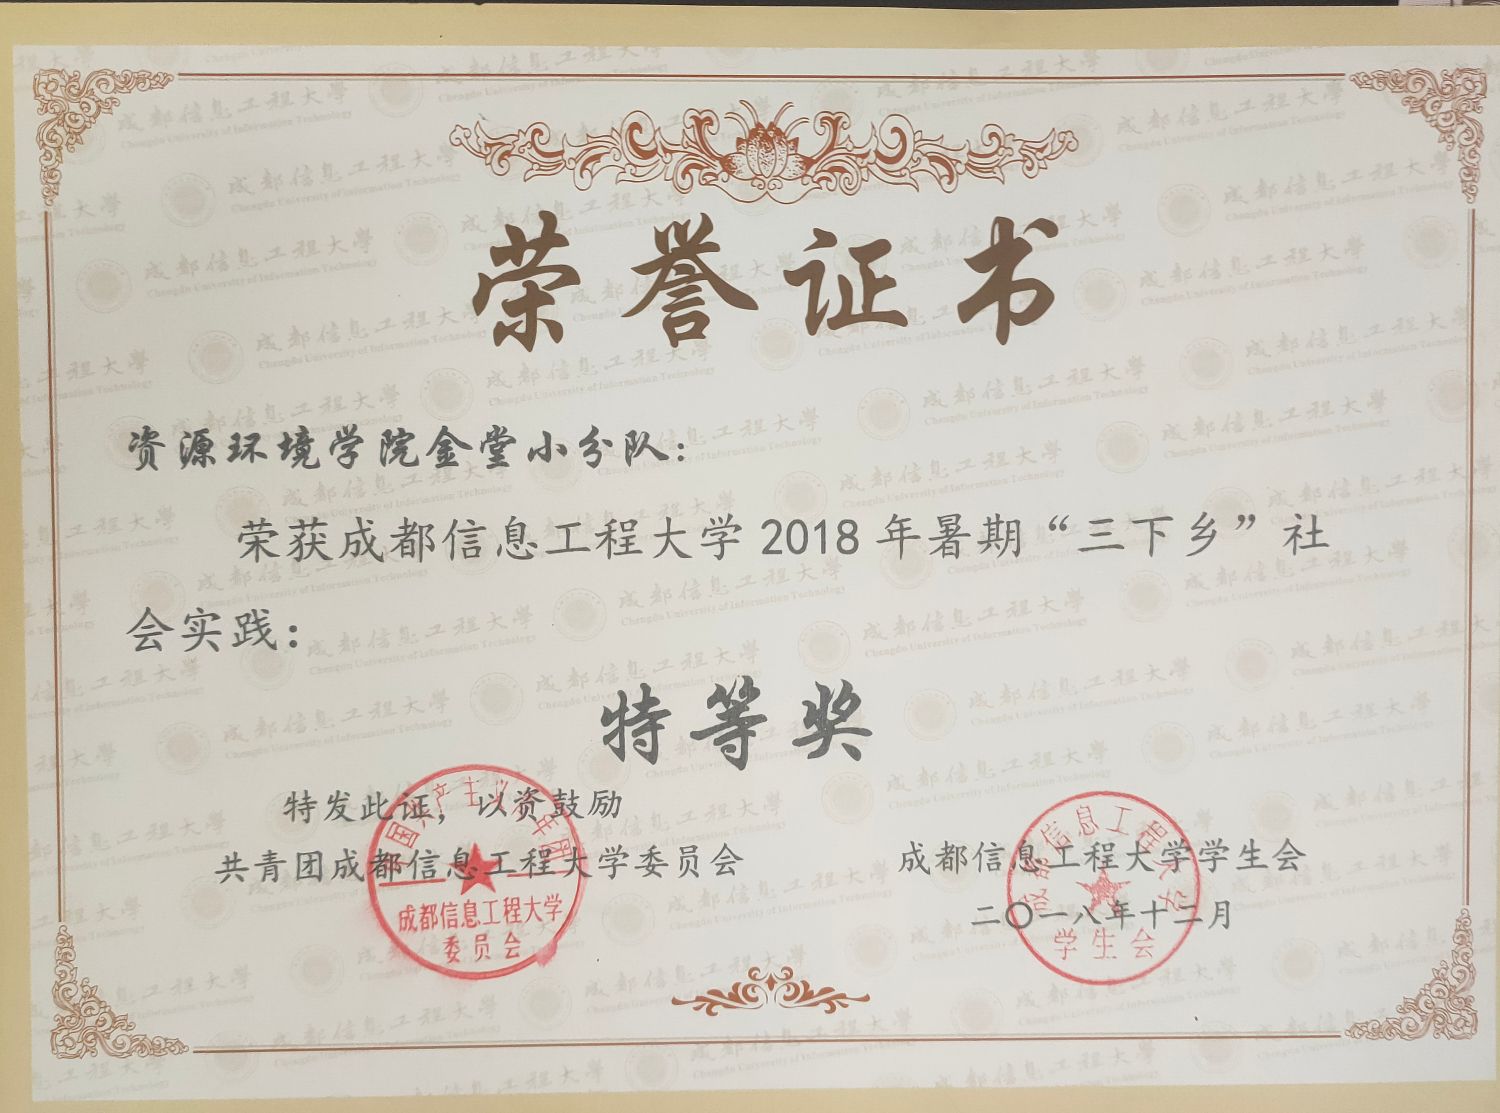 荣誉证书
资源环境学院金堂小分队：
荣获成都信息工程大学 2018 年暑期“三下乡”社
会实践：
特等奖
特发此证，以资鼓励
共青团成都信息工程大学委员会
成都信息工程大学学生会
二〇一八年十二月
成都信息工程大学
委员会
成都信息工程大学
学生会
成都信息工程大學
Chengdu University of Information Technology